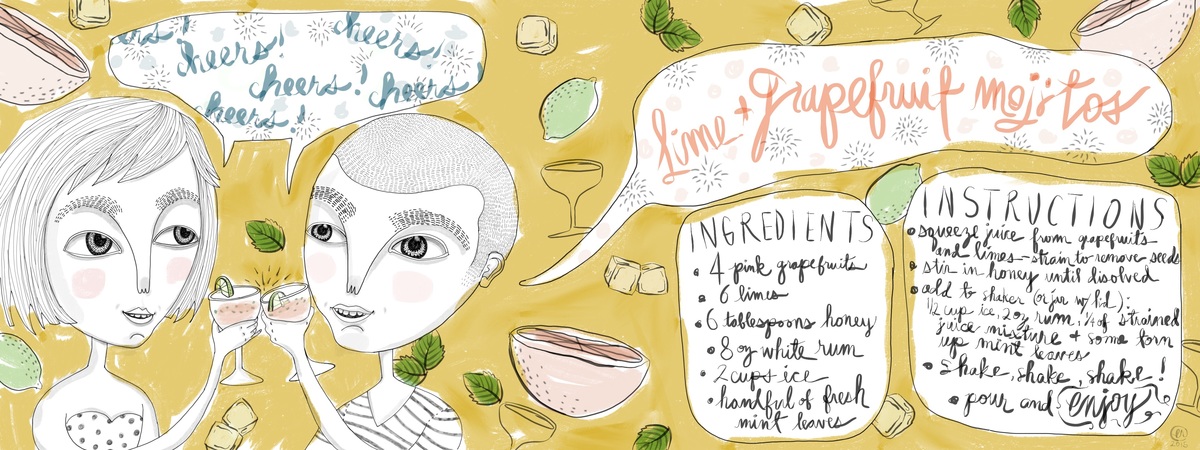 cheers!
cheers!
cheers!
cheers
cheers!
lime + grapefruit mojitos
INGREDIENTS
• 4 pink grapefruits
• 6 limes
• 6 tablespoons honey
• 8 oz white rum
• 2 cups ice
• handful of fresh
mint leaves
INSTRUCTIONS
• squeeze juice from grapefruits
and limes - strain to remove seeds
• stir in honey until disolved
• add to shaker (or jar w/ lid):
1/2 cup ice, 2 oz rum, 1/4 of strained
juice mixture + some torn
up mint leaves
• shake, shake, shake!
• pour and enjoy
2016